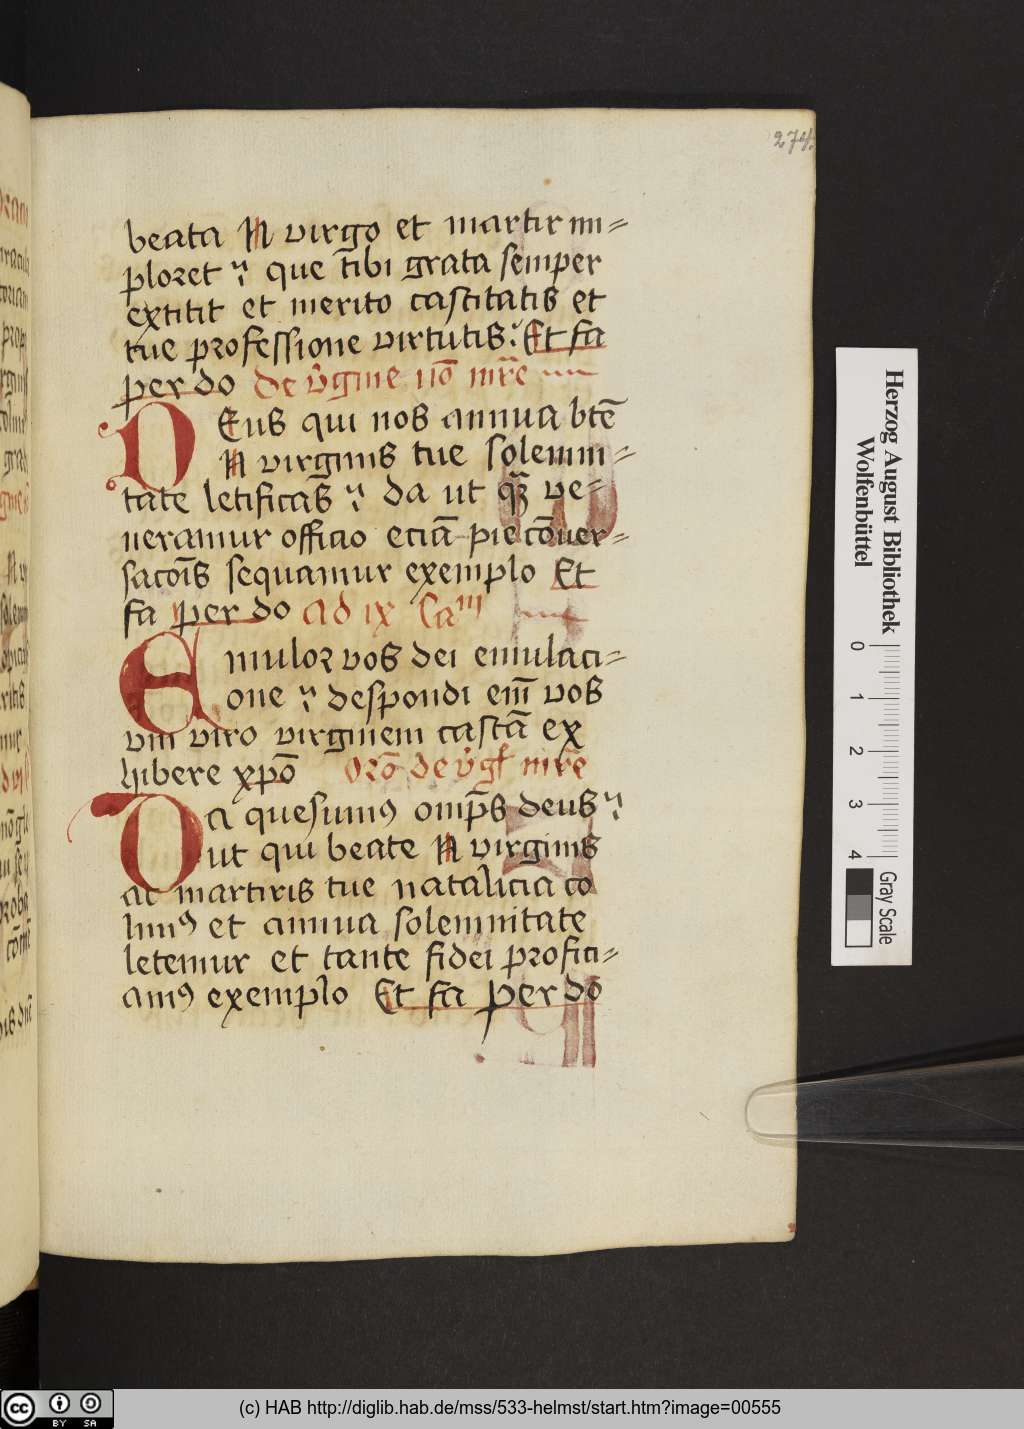 274.
beata N virgo et martir im=
ploret que tibi grata semper
extitit et merito castitatis et
tue professione virtutis Et fa
per do de v̄gine nō mr̄e
DEus qui nos annua btē
N virginis tue solemni=
tate letificas̄ da ut qȝ ve=
neramur officio eciā pie cōver=
sacōis sequamur exemplo Et
fa per do Ad ix Ca^m
Emulor vos dei emulaci=
one despondi em̄ vos
uni viro virginem castā ex
hibere xpō Orō de v̄gī mr̄e
Da quesumꝰ omp̄s deus
ut qui beate N virginis
ac martiris tue natalicia co
limꝰ et annua solemnitate
letemur et tante fidei profici=
amꝰ exemplo Et fa per dō
Herzog August Bibliothek
Wolfenbüttel
0 1 2 3 4
Gray Scale
cc BY SA
(c) HAB http://diglib.hab.de/mss/533-helmst/start.htm?image=00555